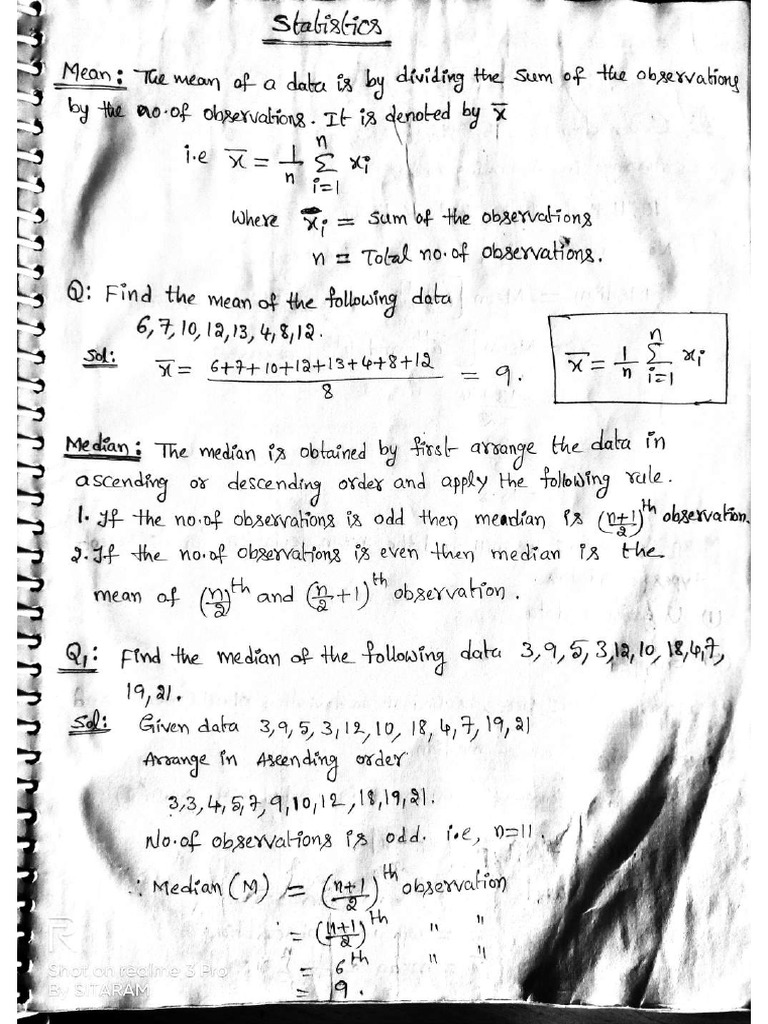 Statistics
Mean: The mean of a data is by dividing the sum of the observations
by the no.of observations. It is denoted by x̄
i.e x̄ = 1/n Σ_{i=1}^{n} xi
Where xi = sum of the observations
n = Total no.of observations.
Q: Find the mean of the following data
6,7,10,12,13,4,8,12.
Sol: x̄ = (6+7+10+12+13+4+8+12)/8 = 9.
x̄ = 1/n Σ_{i=1}^{n} xi
Median: The median is obtained by first arrange the data in
ascending or descending order and apply the following rule.
1. If the no.of observations is odd then meadian is ((n+1)/2)^th observation.
2. If the no.of observations is even then median is the
mean of (n/2)^th and (n/2+1)^th observation.
Q1: Find the median of the following data 3,9,5,3,12,10,18,4,7,
19,21.
Sol: Given data 3,9,5,3,12,10,18,4,7,19,21
Arrange in Ascending order
3,3,4,5,7,9,10,12,18,19,21.
No.of observations is odd. i.e, n=11.
∴ Median (M) = ((n+1)/2)^th observation
= ((11+1)/2)^th " "
= 6^th " "
= 9.
R
Shot on realme 3 Pro
By SITARAM